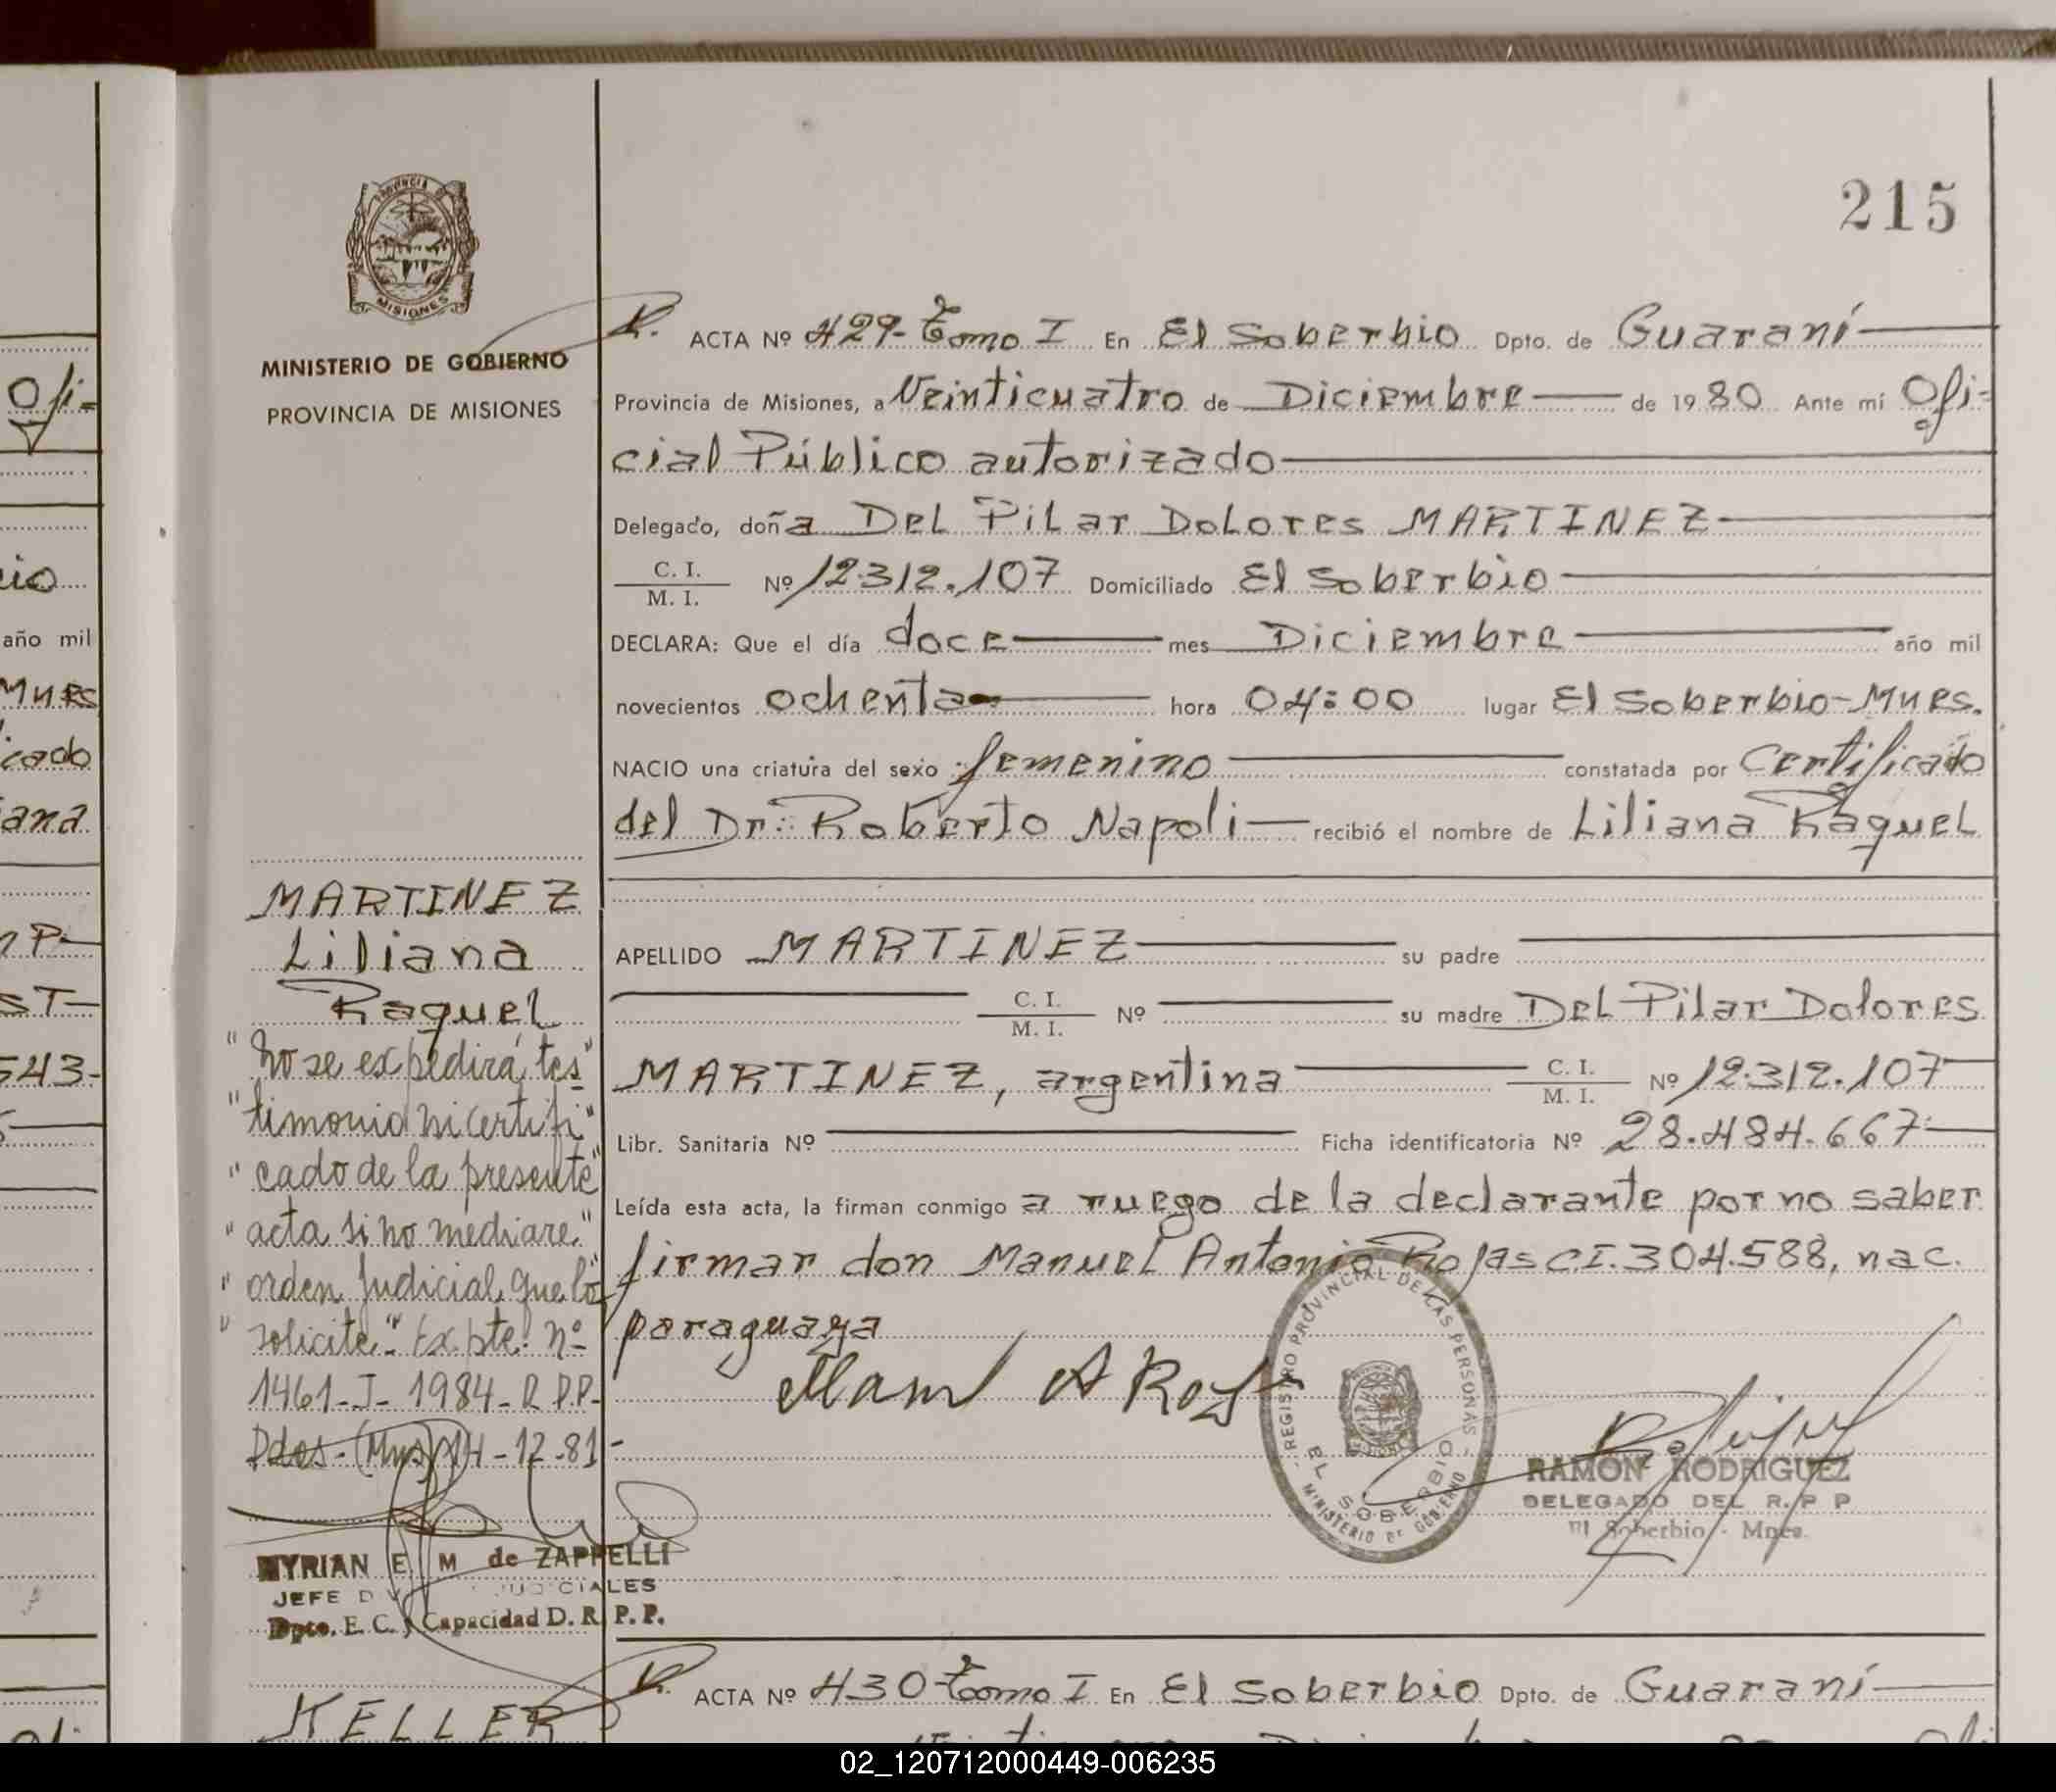 215
PROVINCIA DE
MISIONES
MINISTERIO DE GOBIERNO
PROVINCIA DE MISIONES
ACTA Nº 429- Tomo I En El Soberbio Dpto. de Guaraní
Provincia de Misiones, a Veinticuatro de Diciembre de 1980 Ante mí Ofi-
cial Público autorizado
Delegado, doña Del Pilar Dolores MARTINEZ
C. I.
M. I. Nº 12.312.107 Domiciliado El Soberbio
DECLARA: Que el día doce mes Diciembre año mil
novecientos ochenta hora 04:00 lugar El Soberbio-Mnes.
NACIO una criatura del sexo femenino constatada por Certificado
del Dr: Roberto Napoli recibió el nombre de Liliana Raquel
APELLIDO MARTINEZ su padre
C. I.
M. I. Nº su madre Del Pilar Dolores
MARTINEZ, argentina C. I.
M. I. Nº 12.312.107
Libr. Sanitaria Nº Ficha identificatoria Nº 28.484.667
Leída esta acta, la firman conmigo a ruego de la declarante por no saber
firmar don Manuel Antonio Rojas CI. 304.588, nac.
paraguaya
Manuel A Rojas
REGISTRO PROVINCIAL DE LAS PERSONAS
EL SOBERBIO
MINISTERIO DE GOBIERNO
RAMON RODRIGUEZ
DELEGADO DEL R. P P
El Soberbio - Mnes.
MARTINEZ
Liliana
Raquel
"No se expedirá tes"
"timonio ni certifi"
"cado de la presente"
"acta si no mediare"
"orden Judicial que lo"
"solicite." Expte. nº
1461-J- 1984- R.P.P-
Pdas.-(Mns) 14-12-81-
MYRIAN E. M de ZAPPELLI
JEFE DIV JUDICIALES
Dpto. E. C. y Capacidad D. R. P. P.
KELLER
ACTA Nº 430-Tomo I En El Soberbio Dpto. de Guaraní
Ofi-
cio
año mil
Mnes
icado
iana
n P-
ST-
543-
02_120712000449-006235